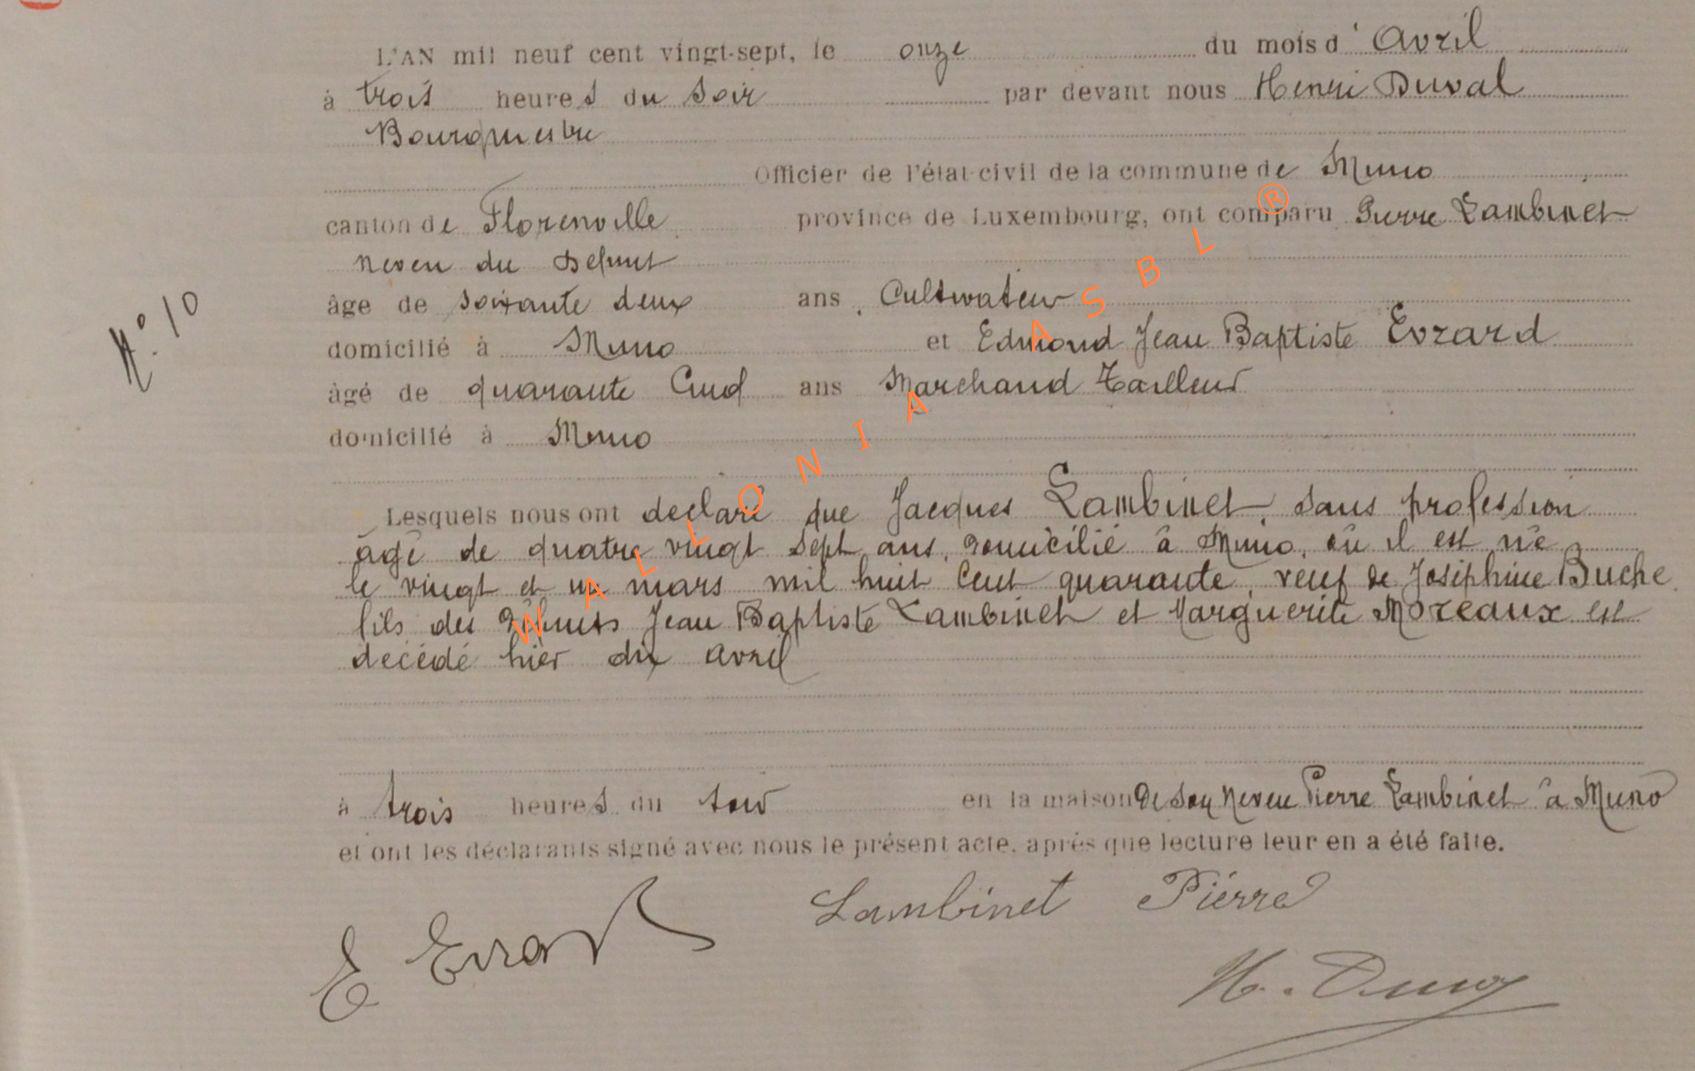 L'AN mil neuf cent vingt-sept, le onze du mois d'Avril
à trois heures du soir par devant nous Henri Duval
Bourgmestre
Officier de l'état-civil de la commune de Muno
canton de Florenville province de Luxembourg, ont comparu Pierre Lambinet
neveu du Defunt
âge de soixante deux ans, Cultivateur
N° 10
domicilié à Muno et Edmond Jean Baptiste Evrard
âgé de quarante Cinq ans Marchand Tailleur
domicilié à Muno
Lesquels nous ont declaré que Jacques Lambinet, sans profession
âgé de quatre vingt sept ans, domicilié à Muno, où il est né
le vingt et un mars mil huit Cent quarante, veuf de Joséphine Buche
fils des défunts Jean Baptiste Lambinet et Marguerite Moreaux est
decédé hier dix avril
à trois heures du soir en la maison de son Neveu Pierre Lambinet à Muno
et ont les déclarants signé avec nous le présent acte, après que lecture leur en a été faite.
Lambinet Pierre
E Evrard
H. Duval
WALLONIA ASBL ®